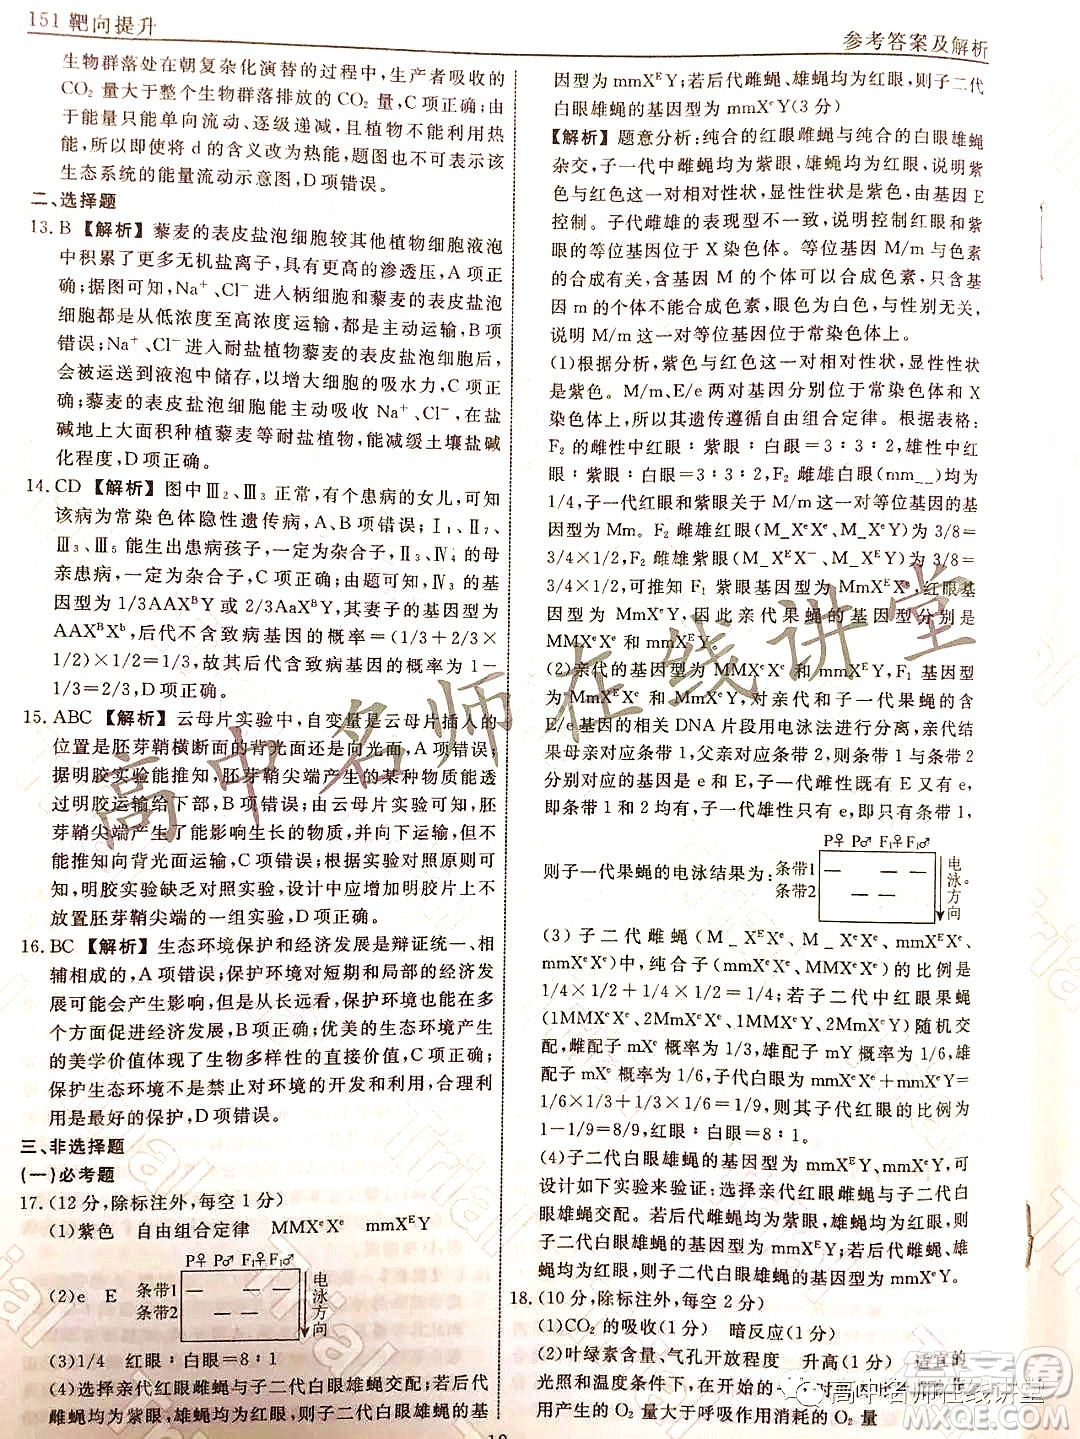 151 靶向提升
参考答案及解析
生物群落处在朝复杂化演替的过程中,生产者吸收的
CO₂ 量大于整个生物群落排放的 CO₂ 量,C 项正确;由
于能量只能单向流动、逐级递减,且植物不能利用热
能,所以即使将 d 的含义改为热能,该图也不可以作为
生态系统的能量流动示意图,D 项错误。
二、选择题
13. B 【解析】藜麦的表皮盐泡细胞较其他植物细胞液泡
中积累了更多无机盐离子,具有更高的渗透压,A 项正
确;据图可知,Na⁺、Cl⁻进入柄细胞和藜麦的表皮盐泡
细胞都是从低浓度至高浓度运输,为主动运输,B 项
错误;Na⁺、Cl⁻进入耐盐植物藜麦的表皮盐泡细胞后,
会被运送到液泡中储存,以增大细胞的吸水力,C 项正
确;藜麦的表皮盐泡细胞能主动吸收 Na⁺、Cl⁻,在盐
碱地上大面积种植藜麦等耐盐植物,能减缓土壤盐碱
化程度,D 项正确。
14. CD 【解析】图中Ⅲ₂、Ⅲ₃ 正常,有个患病的女儿,可知
该病为常染色体隐性遗传病,A、B 项错误;Ⅰ₁、Ⅱ₇、
Ⅲ₃、Ⅲ₅ 能生出患病孩子,一定为杂合子,Ⅱ₂、Ⅳ₄ 的母
亲患病,一定为杂合子,C 项正确;由题可知,Ⅳ₄ 的基
因型为 1/3AAXᴮY 或 2/3AaXᴮY,其妻子的基因型为
AAXᴮXᵇ,后代不含致病基因的概率＝(1/3＋2/3×
1/2)×1/2＝1/3,故其后代含致病基因的概率为 1－
1/3＝2/3,D 项正确。
15. ABC 【解析】云母片实验中,自变量是云母片插入的
位置是胚芽鞘横断面的背光面还是向光面,A 项错误;
据明胶实验能推知,胚芽鞘尖端产生的某种物质能透
过明胶运输给下部,B 项错误;由云母片实验可知,胚
芽鞘尖端产生了能影响生长的物质,并向下运输,但不
能推知是向背光面运输,C 项错误;据对照原则可知,
明胶实验缺乏对照实验,设计中应增加明胶片上不
放置胚芽鞘尖端的一组实验,D 项正确。
16. BC 【解析】生态环境保护和经济发展是辩证统一、相
辅相成的,A 项错误;保护环境对短期和局部的经济发
展可能会产生影响,但是从长远看,保护环境可以在多
个方面促进经济发展,B 项正确;优美的生态环境产生
的美学价值体现了生物多样性的直接价值,C 项正确;
保护生态环境不是禁止对环境的开发和利用,合理利
用是最好的保护,D 项错误。
三、非选择题
(一)必考题
17. (12 分,除标注外,每空 1 分)
(1)紫色 自由组合定律 MMXᵉXᵉ mmXᴱY
P♀ P♂ F₁♀F₁♂
(2)e E 条带1 条带2 电泳方向
(3)1/4 红眼∶白眼＝8∶1
(4)选择亲代红眼雌蝇与子二代白眼雄蝇交配。若后代雌蝇为紫眼,雄蝇为红眼,则子二代白眼雄蝇的基
因型为 mmXᴱY;若后代雌蝇、雄蝇均为红眼,则子二代
白眼雄蝇的基因型为 mmXᵉY(3 分)
【解析】题意分析:纯合的红眼雌蝇与纯合的白眼雄蝇
杂交,子一代中雌蝇均为紫眼,雄蝇均为红眼,说明紫
色与红色是一对相对性状,显性性状是紫色,由基因 E
控制。子代雌雄的表现型不一致,说明控制红眼和紫
眼的等位基因位于 X 染色体。等位基因 M/m 与色素
的合成有关,含基因 M 的个体可以合成色素,含基
因 m 的个体不能合成色素,眼色为白色,与性别无关,
说明 M/m 这一对等位基因位于常染色体上。
(1)根据分析,紫色与红色是一对相对性状,显性性状
是紫色。M/m、E/e 两对基因分别位于常染色体和 X
染色体上,所以其遗传遵循自由组合定律。根据表格:
F₂ 的雌性中红眼∶紫眼∶白眼＝3∶3∶2,雄性中红
眼∶紫眼∶白眼＝3∶3∶2,F₂ 雌雄白眼(mm__)均为
1/4,子一代红眼和紫眼关于 M/m 这对等位基因的基
因型为 Mm。F₂ 雌雄红眼(M_XᵉXᵉ、M_XᵉY)为 3/8＝
3/4×1/2,F₂ 雌雄紫眼(M_XᴱX⁻、M_XᴱY)为 3/8＝
3/4×1/2,可推知 F₁ 紫眼基因型为 MmXᴱXᵉ,红眼基
因型为 MmXᵉY,因此亲代果蝇的基因型分别是
MMXᵉXᵉ 和 mmXᴱY。
(2)亲代的基因型为 MMXᵉXᵉ 和 mmXᴱY,F₁ 的基因
型为 MmXᴱXᵉ 和 MmXᵉY,对亲代和子一代果蝇的含
E/e基因的相关 DNA 片段用电泳法进行分离,亲代结
果母亲对应条带1,父亲对应条带2,则条带 1 和条带 2
分别对应的基因是 e 和 E,子一代雌性既有 E 又有 e,
即条带 1 和 2 均有,子一代雄性只有 e,即只有条带 1,
P♀ P♂ F₁♀F₁♂
则子一代果蝇的电泳结果为: 条带1 条带2 电泳方向。
(3)子二代雌蝇(M_XᴱXᵉ、M_XᵉXᵉ、mmXᴱXᵉ、mmXᵉ
Xᵉ)中,纯合子(mmXᵉXᵉ、MMXᵉXᵉ)的概率为 1/4×
1/2＋1/4×1/2＝1/4;若子二代中红眼果蝇
(1MMXᵉXᵉ、2MmXᵉXᵉ、1MMXᵉY、2MmXᵉY)随机交
配,雌配子 mXᵉ 概率为 1/3,雄配子 mY 概率为 1/6,雄
配子 mXᵉ 概率为 1/6,子代白眼的概率为 1/3×
1/6＋1/3×1/6＝1/9,所以子代红眼的概率为
1－1/9＝8/9,故红眼∶白眼＝8∶1。
(4)子二代白眼雄蝇的基因型为 mmXᴱY、mmXᵉY,可
设计如下实验来验证:选择亲代红眼雌蝇与子二代白
眼雄蝇交配。若后代雌蝇为紫眼,雄蝇为红眼,则子
二代白眼雄蝇的基因型为 mmXᴱY;若后代雌蝇、雄蝇
均为红眼,则子二代白眼雄蝇的基因型为 mmXᵉY。
18. (10 分,除标注外,每空 2 分)
(1)CO₂ 的吸收(1 分) 暗反应(1 分)
(2)叶绿素含量、气孔开放程度 升高(1 分) 适宜的
光照和温度条件下,在较
用产生的 O₂ 量大于呼吸作用消耗的 O₂ 量
高中名师在线讲堂
高中名师在线讲堂
答案圈
MXQE.COM
Trial